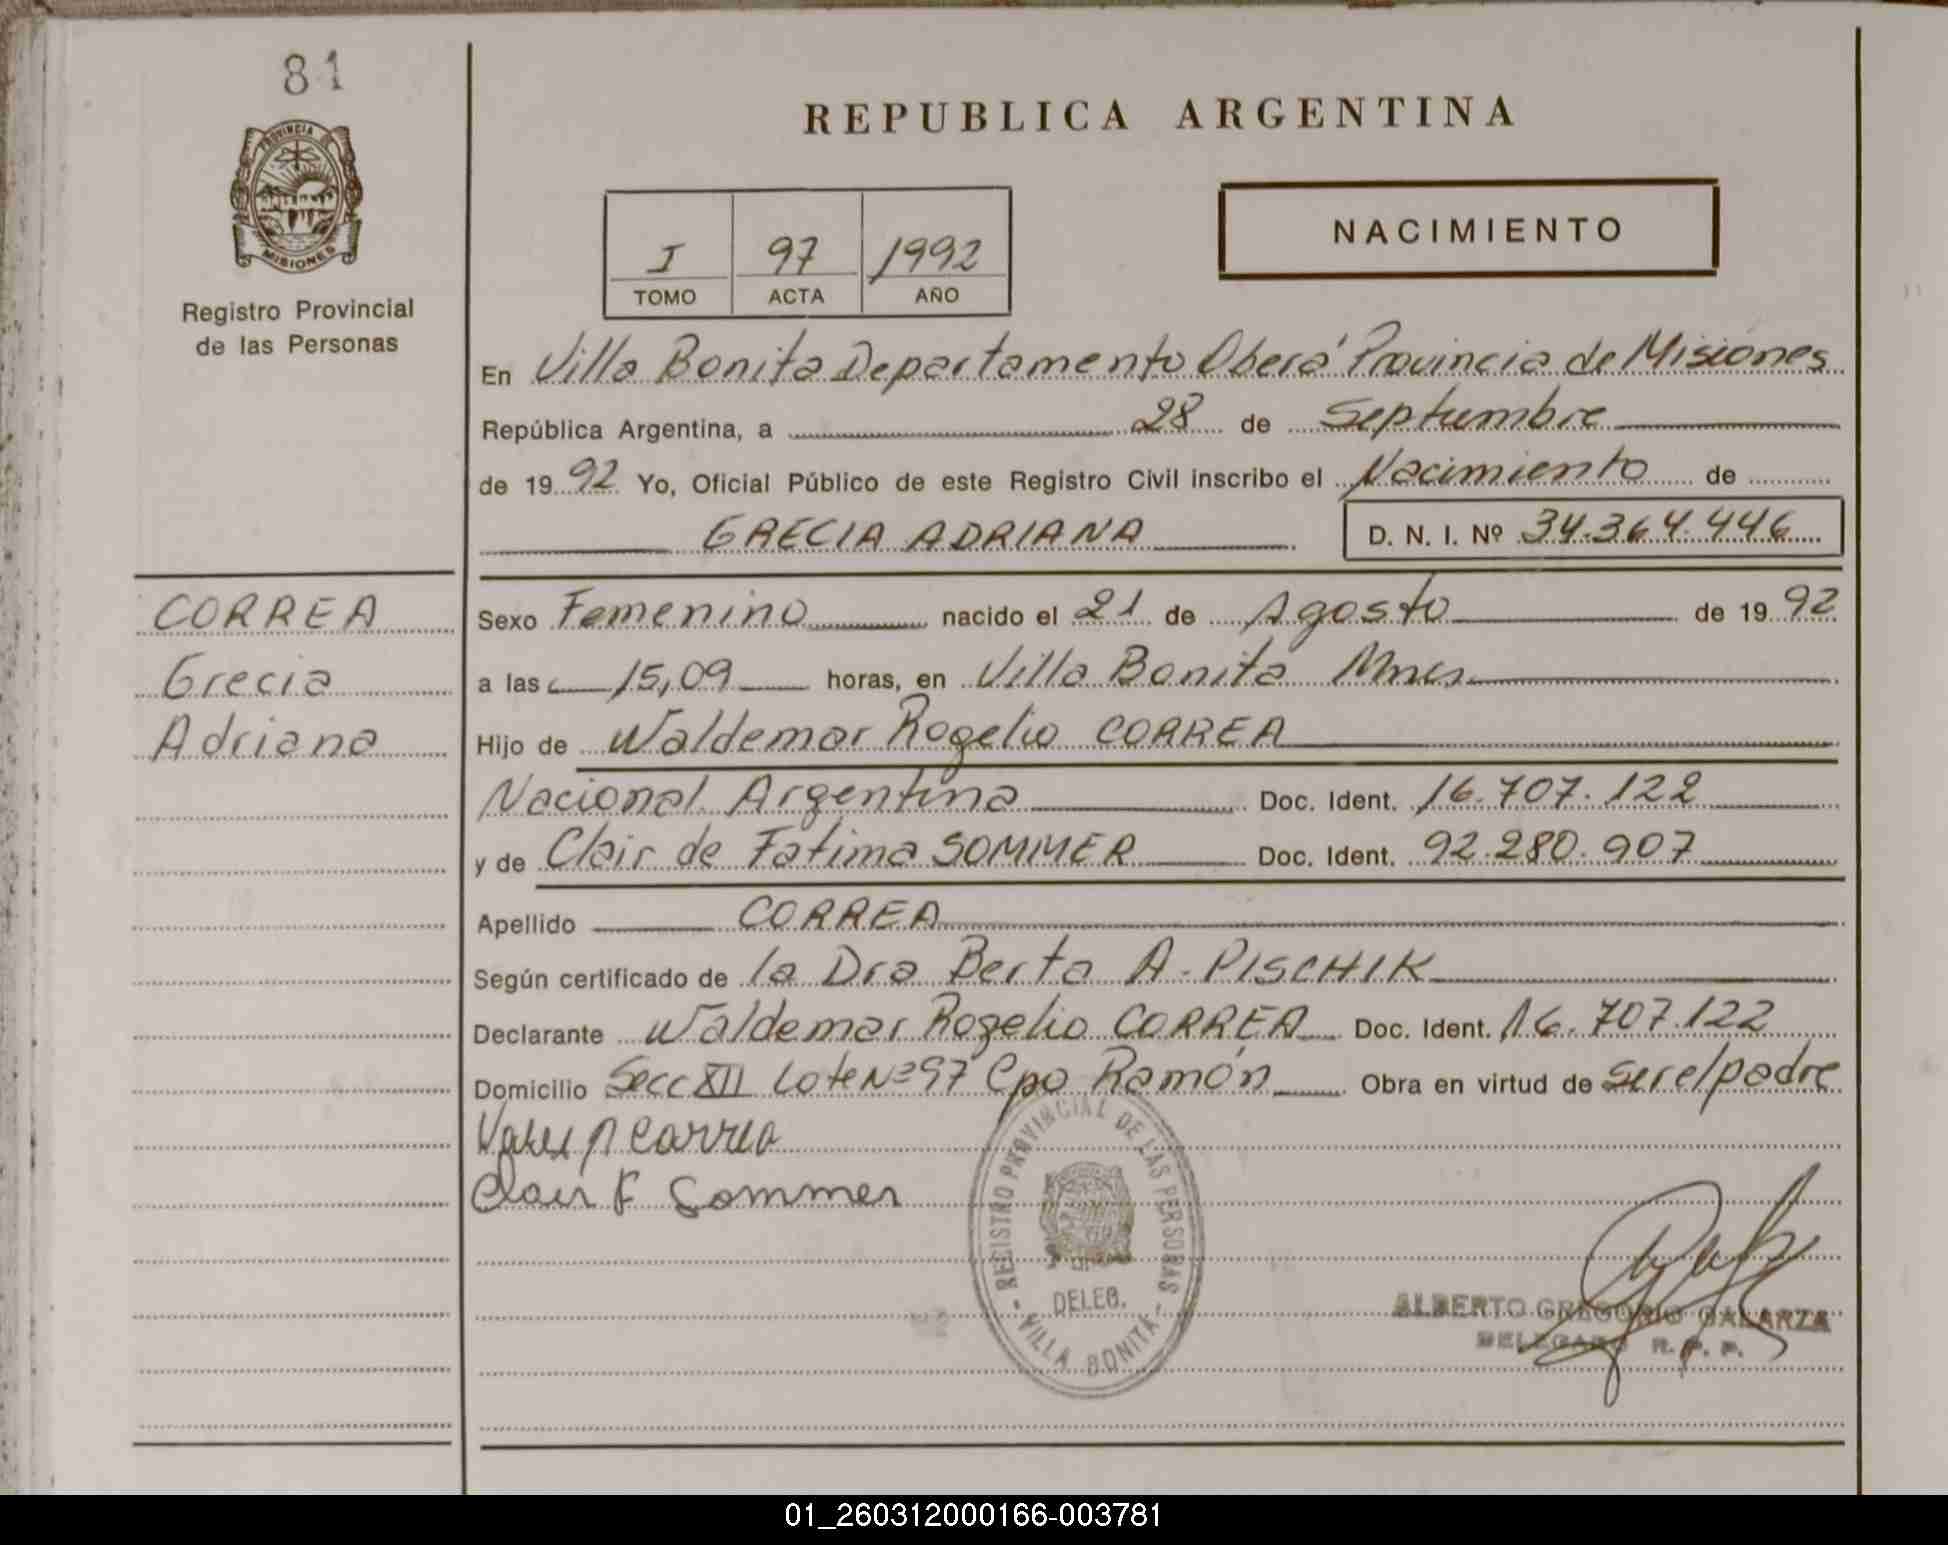 81
REPUBLICA ARGENTINA
PROVINCIA
MISIONES
Registro Provincial
de las Personas
I 97 1992
TOMO ACTA AÑO
NACIMIENTO
En Villa Bonita Departamento Oberá Provincia de Misiones
República Argentina, a 28 de Septiembre
de 1992 Yo, Oficial Público de este Registro Civil inscribo el Nacimiento de
GRECIA ADRIANA D. N. I. Nº 34.364.446
CORREA
Grecia
Adriana
Sexo Femenino nacido el 21 de Agosto de 1992
a las 15,09 horas, en Villa Bonita Mnes
Hijo de Waldemar Rogelio CORREA
Nacional Argentina Doc. Ident. 16.707.122
y de Clair de Fatima SOMMER Doc. Ident. 92.280.907
Apellido CORREA
Según certificado de la Dra Berta A. PISCHIK
Declarante Waldemar Rogelio CORREA Doc. Ident. 16.707.122
Domicilio Secc XII Lote Nº 97 Cpo Ramón Obra en virtud de ser el padre
Correa
Clair F Sommer
REGISTRO PROVINCIAL DE LAS PERSONAS
DELEG.
- VILLA BONITA -
ALBERTO GREGORIO GALARZA
DELEGADO R. P. P.
01_260312000166-003781